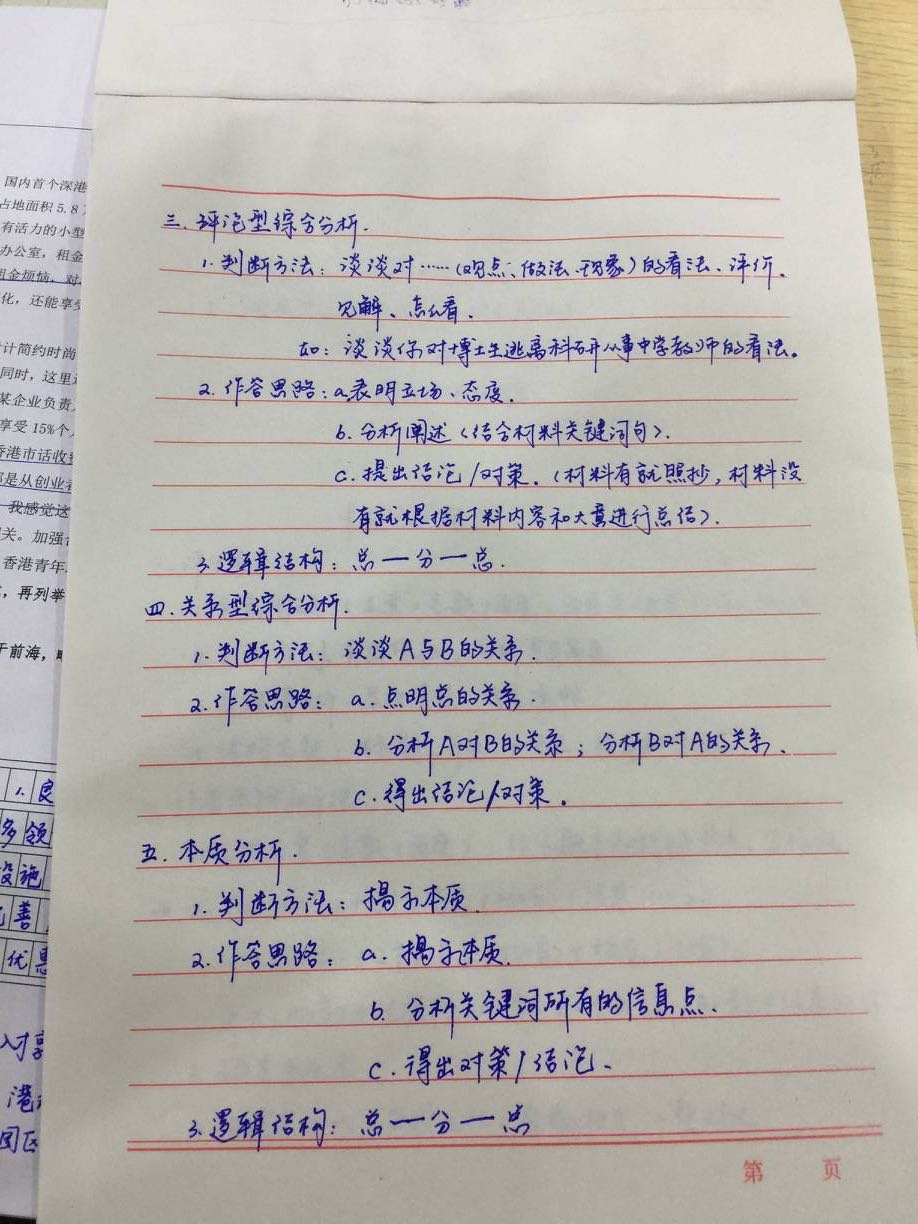 国内首个深港
占地面积5.8
有活力的小型
办公室，租金
租金烦恼，对
化，还能享受
计简约时尚
同时，这里
某企业负责
享受15%个
香港市话收费
都是从创业者
我感觉这
关。加强
香港青年
，再列举
于前海，
1.良
多领
设施
善
优惠
港
园区
三.评论型综合分析.
1.判断方法：谈谈对……（观点、做法、现象）的看法、评价、
见解、怎么看.
如：谈谈你对博士生逃离科研从事中学教师的看法。
2.作答思路：a.表明立场、态度.
b.分析阐述（结合材料关键词句）.
c.提出结论/对策.（材料有就照抄,材料没
有就根据材料内容和大意进行总结）.
3.逻辑结构：总一分一总.
四.关系型综合分析.
1.判断方法：谈谈A与B的关系.
2.作答思路：a.点明总的关系.
b.分析A对B的关系；分析B对A的关系.
c.得出结论/对策。
五.本质分析.
1.判断方法：揭示本质.
2.作答思路：a.揭示本质.
b.分析关键词所有的信息点.
c.得出对策/结论、
3.逻辑结构：总一分一总
第 页